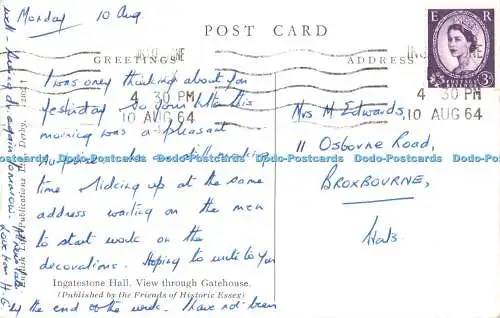 Monday 10 Aug.
POST CARD
GREETINGS
ADDRESS
E R
POSTAGE
3D
4 30 PM
10 AUG 64
4 30 PM
10 AUG 64
I was only thinking about you
yesterday so your letter this
morning was a pleasant
surprise. I am still marking
time up at the same
address waiting on the men
to start work on the
decorations. Hoping to write to you
by the end of the week. I have not been
well - Seeing dr again tomorrow.
Love from H.G.
Mrs M Edwards,
11 Osborne Road,
BROXBOURNE,
Herts.
Ingatestone Hall. View through Gatehouse.
(Published by the Friends of Historic Essex)
English Life Publications Ltd. Derby.
Dodo-Postcards Dodo-Postcards Dodo-Postcards Dodo-Postcards Dodo-Postcards